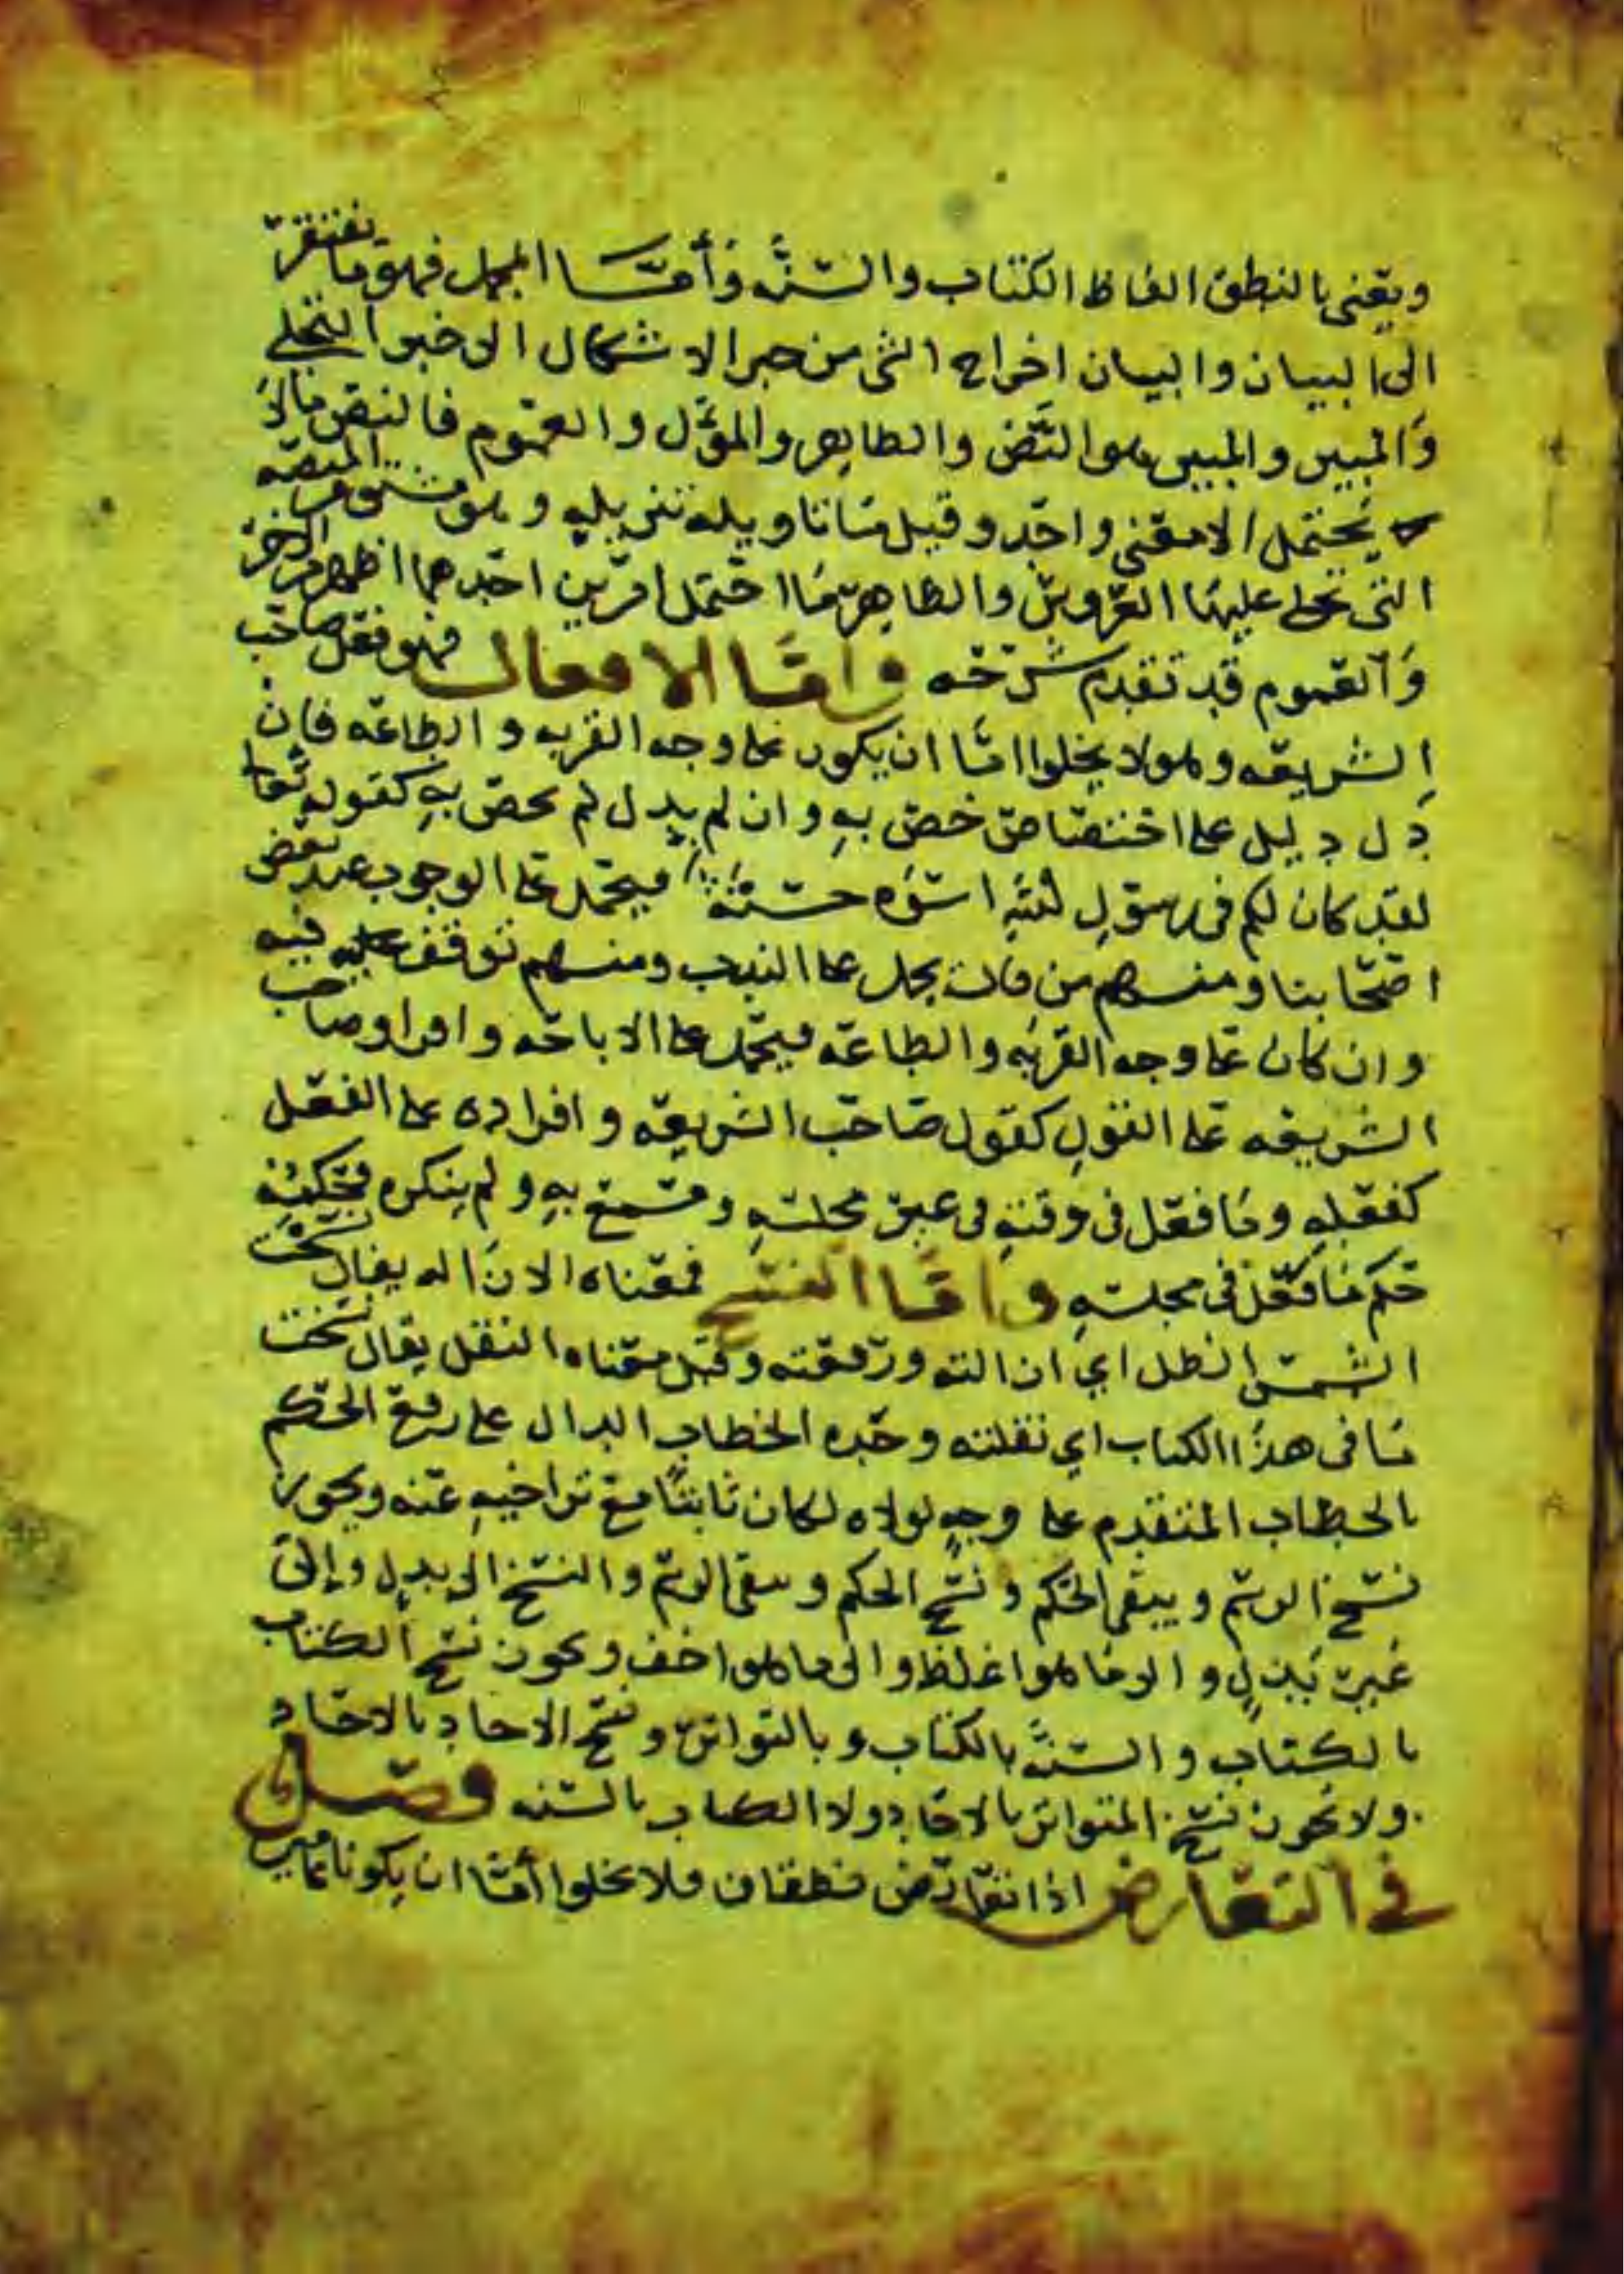 ويعني بالنطق الفاظ الكتاب والسنه وأما المجمل فهو ما يفتقر
الى البيان والبيان اخراج الشي من حيز الاشكال الى حيز التجلي
والمبين والمبين هو النص والظاهر والمؤل والعموم فالنص مالا
يحتمل الا معنى واحد وقيل ما تاويله تنزيله وهو مشتق من المنصه
التي تجلى عليها العروس والظاهر ما احتمل امرين احدهما اظهر من الاخر
والعموم قد تقدم شرحه وأما الافعال فهو فعل صاحب
الشريعه وهو لا يخلوا اما ان يكون على وجه القربه والطاعه فان
دل دليل على اختصاص خص به وان لم يدل لم يخص به كقوله تعالى
لقد كان لكم في رسول الله اسوه حسنة فيحمل على الوجوب عند بعض
اصحابنا ومنهم من قال يحمل على الندب ومنهم توقف فيه
وان كان على وجه القربه والطاعه فيحمل على الاباحه واقرار صاحب
الشريعه على القول كقول صاحب الشريعه واقراره على الفعل
كفعله وما فعل في وقته في غير مجلسه وسمع به ولم ينكره فحكمه
حكم ما فعل في مجلسه وأما النسخ فمعناه الازاله يقال نسخت
الشمس الظل اي ازالته ورفعته وقيل معناه النقل يقال نسخت
ما في هذا الكتاب اي نقلته وحده الخطاب الدال على رفع الحكم
بالخطاب المتقدم على وجه لولاه لكان ثابتا مع تراخيه عنه ويجوز
نسخ الرسم ويبقى الحكم ونسخ الحكم وبقى الرسم والنسخ الى بدل وإلى
غير بدل والى ما هو اغلظ والى ما هو اخف ويجوز نسخ الكتاب
بالكتاب والسنه بالكتاب وبالتواتر ونسخ الاحاد بالاحاد
ولا يجوز نسخ المتواتر بالاحاد ولا الكتاب بالسنه فصل
في التعارض اذا تعارض نطقان فلا يخلوا أما ان يكونا عامين